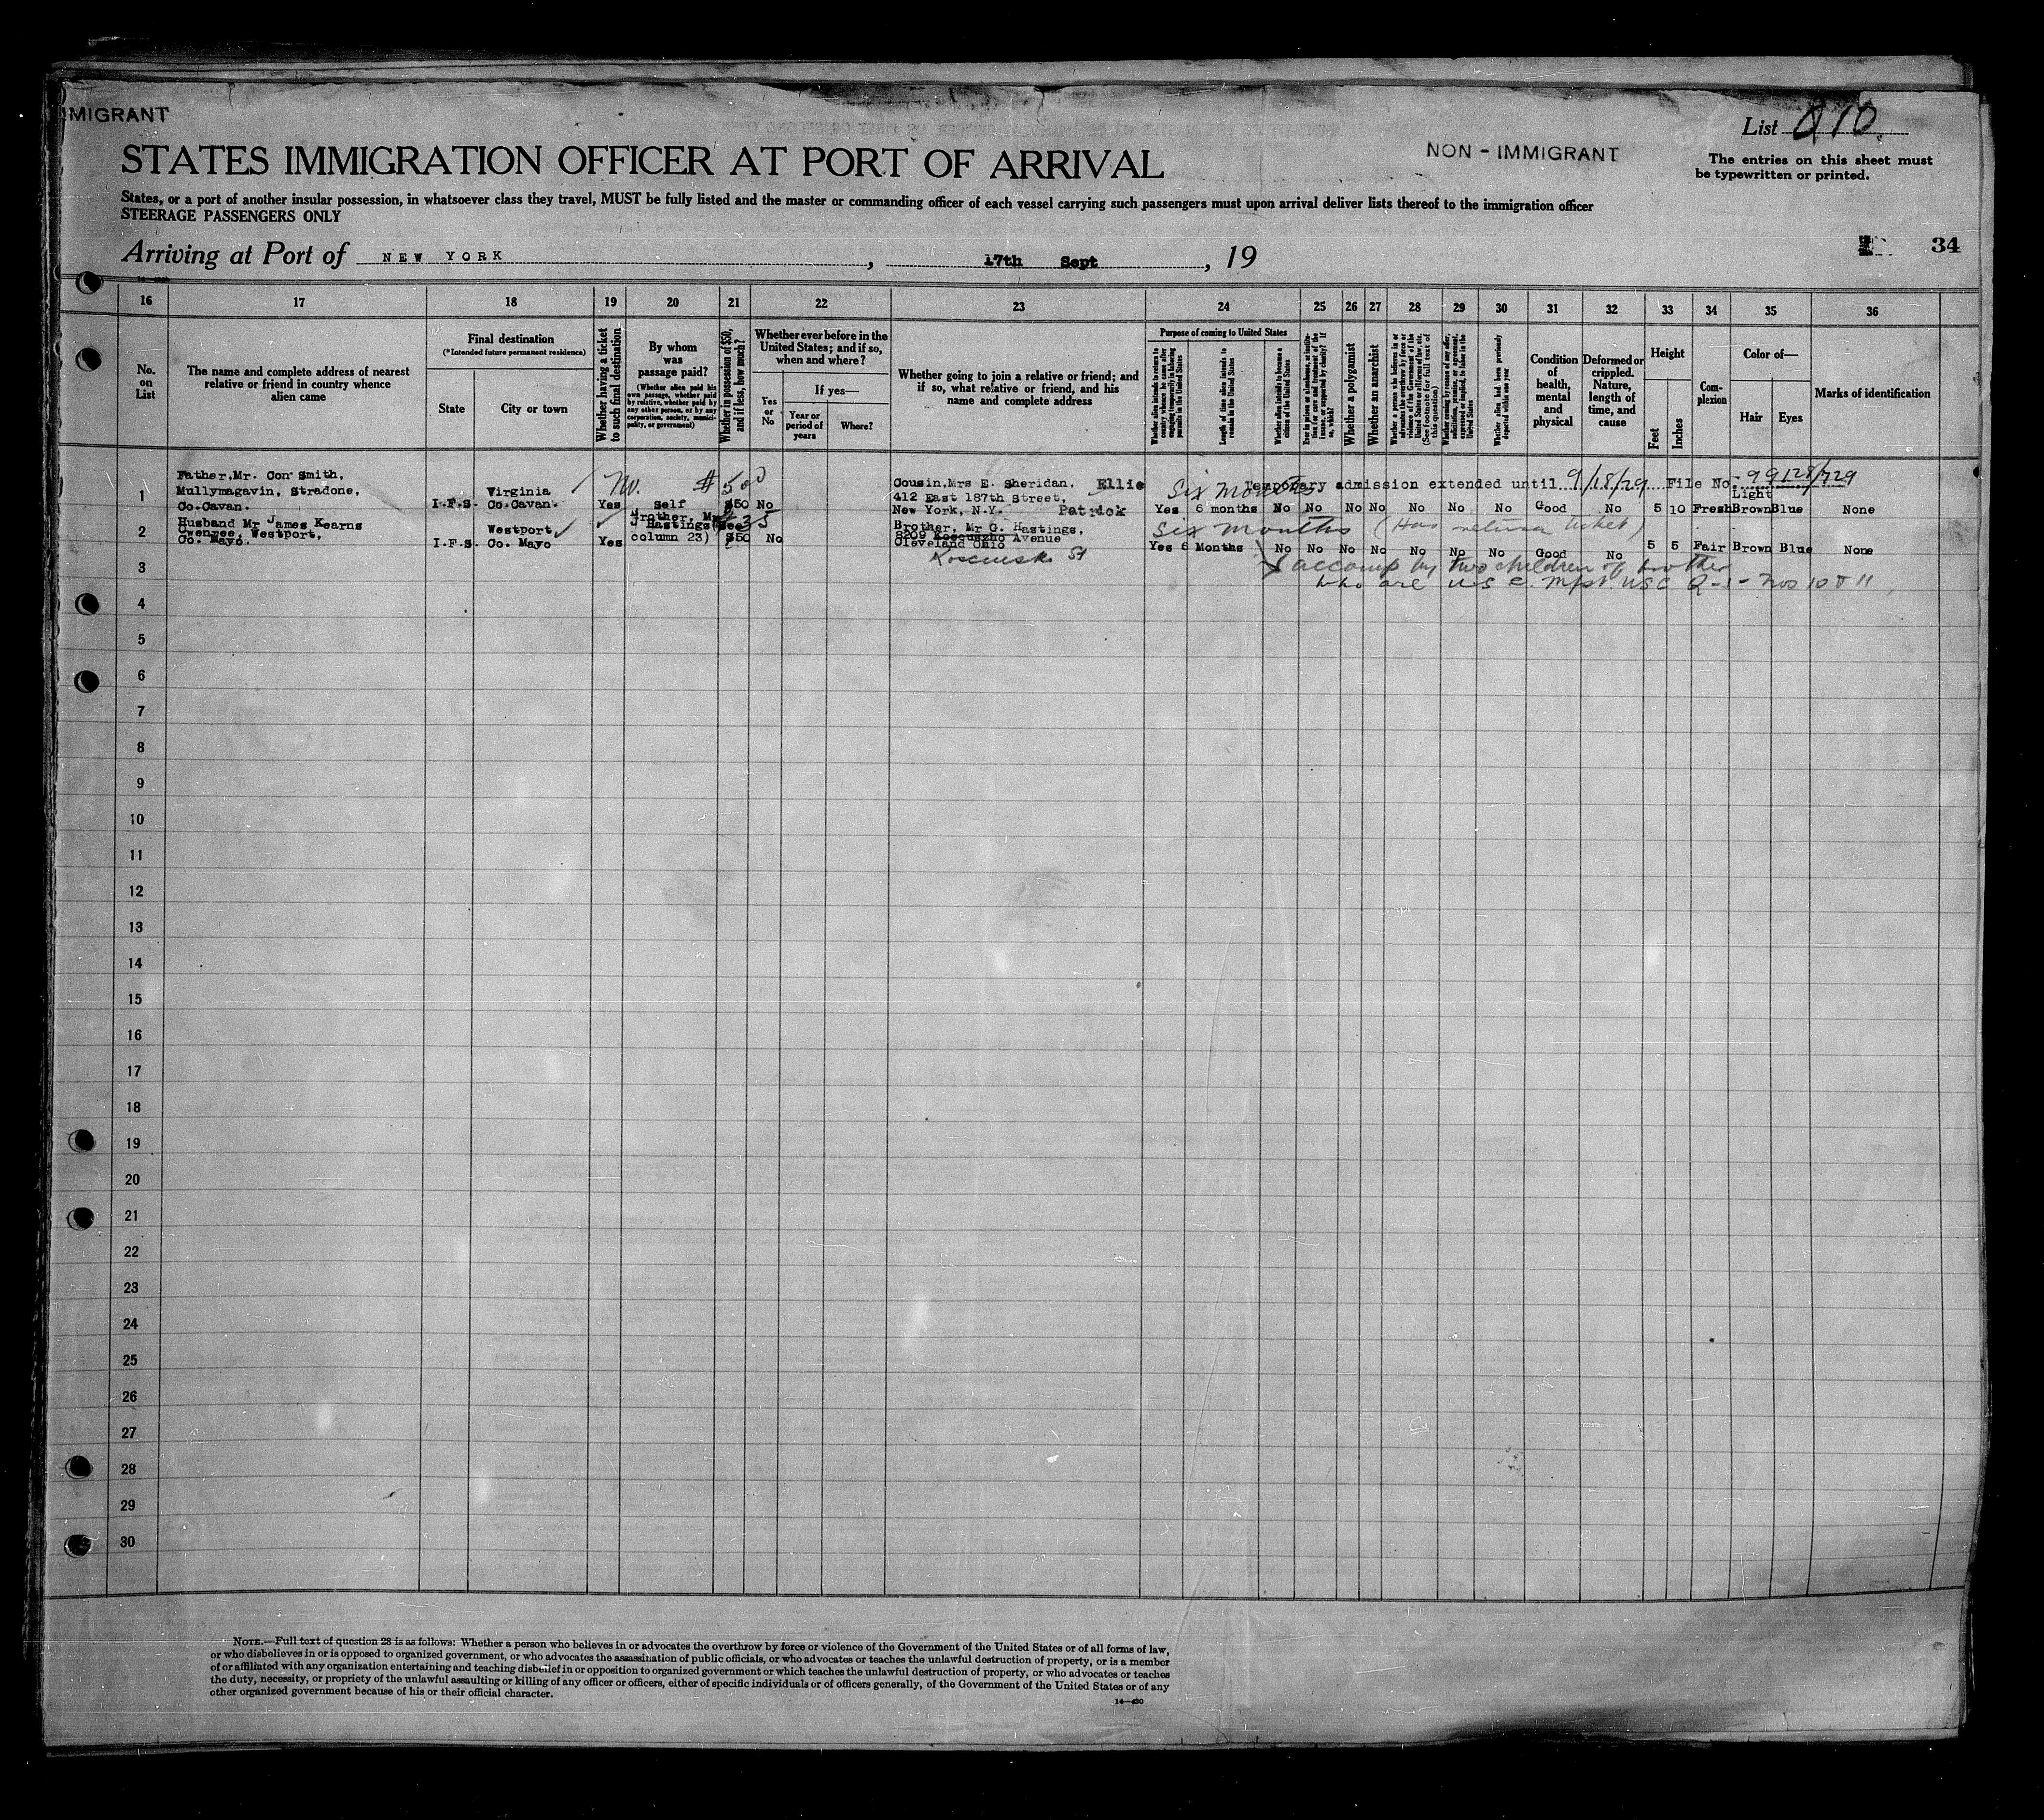 MIGRANT
List
STATES IMMIGRATION OFFICER AT PORT OF ARRIVAL
NON - IMMIGRANT
The entries on this sheet must
be typewritten or printed.
States, or a port of another insular possession, in whatsoever class they travel, MUST be fully listed and the master or commanding officer of each vessel carrying such passengers must upon arrival deliver lists thereof to the immigration officer
STEERAGE PASSENGERS ONLY
34
Arriving at Port of NEW YORK, 17th Sept, 19
16 17 18 19 20 21 22 23 24 25 26 27 28 29 30 31 32 33 34 35 36
No.
on
List
The name and complete address of nearest
relative or friend in country whence
alien came
Final destination
(*Intended future permanent residence)
State
City or town
Whether having a ticket
to such final destination
By whom
was
passage paid?
(Whether alien paid his
own passage, whether paid
by relative, whether paid by
any other person, or by any
corporation, society, munici-
pality, or government)
Whether in possession of $50,
and if less, how much?
Whether ever before in the
United States; and if so,
when and where?
Yes
or
No
If yes—
Year or
period of
years
Where?
Whether going to join a relative or friend; and
if so, what relative or friend, and his
name and complete address
Purpose of coming to United States
Whether alien intends to return to
country whence he came after
engaging temporarily in laboring
pursuits in the United States
Length of time alien intends to
remain in the United States
Whether alien intends to become a
citizen of the United States
Ever in prison or almshouse, or institu-
tion for care and treatment of the
insane, or supported by charity? If
so, which?
Whether a polygamist
Whether an anarchist
Whether a person who believes in or
advocates the overthrow by force or
violence of the Government of the
United States or all forms of law, etc.
(See footnote for full text of
this question)
Whether coming by reason of any offer,
solicitation, promise, or agreement,
expressed or implied, to labor in the
United States
Whether alien had been previously
deported within one year
Condition
of
health,
mental
and
physical
Deformed or
crippled.
Nature,
length of
time, and
cause
Height
Feet
Inches
Com-
plexion
Color of—
Hair
Eyes
Marks of identification
1
Father, Mr. Con Smith,
Mullymagavin, Stradone,
Co.Cavan.
I.F.S.
Virginia
Co.Cavan.
Yes
Self
$50
No
Cousin, Mrs E. Sheridan. Ellie
412 East 187th Street,
New York, N.Y. Patrick
Six months
Temporary admission extended until 9/18/29 File No. 99128/729
Yes 6 months No No No No No No No Good No 5 10 Fresh Light Brown Blue None
2
Husband Mr James Kearns
Owenree, Westport,
Co. Mayo.
I.F.S.
Westport
Co. Mayo
Yes
Brother, Mr
J Hastings (See
column 23)
$50
No
Brother, Mr G. Hastings,
8209 Kosciuszko Avenue
Cleveland Ohio
Six months (Has return ticket)
Yes 6 Months No No No No No No No Good No 5 5 Fair Brown Blue None
3
accomp by two children of brother
who are U S C. Mfst. USC Q-1- Nos 10 & 11
4
5
6
7
8
9
10
11
12
13
14
15
16
17
18
19
20
21
22
23
24
25
26
27
28
29
30
NOTE.—Full text of question 28 is as follows: Whether a person who believes in or advocates the overthrow by force or violence of the Government of the United States or of all forms of law,
or who disbelieves in or is opposed to organized government, or who advocates the assassination of public officials, or who advocates or teaches the unlawful destruction of property, or is a member
of or affiliated with any organization entertaining and teaching disbelief in or opposition to organized government or which teaches the unlawful destruction of property, or who advocates or teaches
the duty, necessity, or propriety of the unlawful assaulting or killing of any officer or officers, either of specific individuals or of officers generally, of the Government of the United States or of any
other organized government because of his or their official character.
14—430